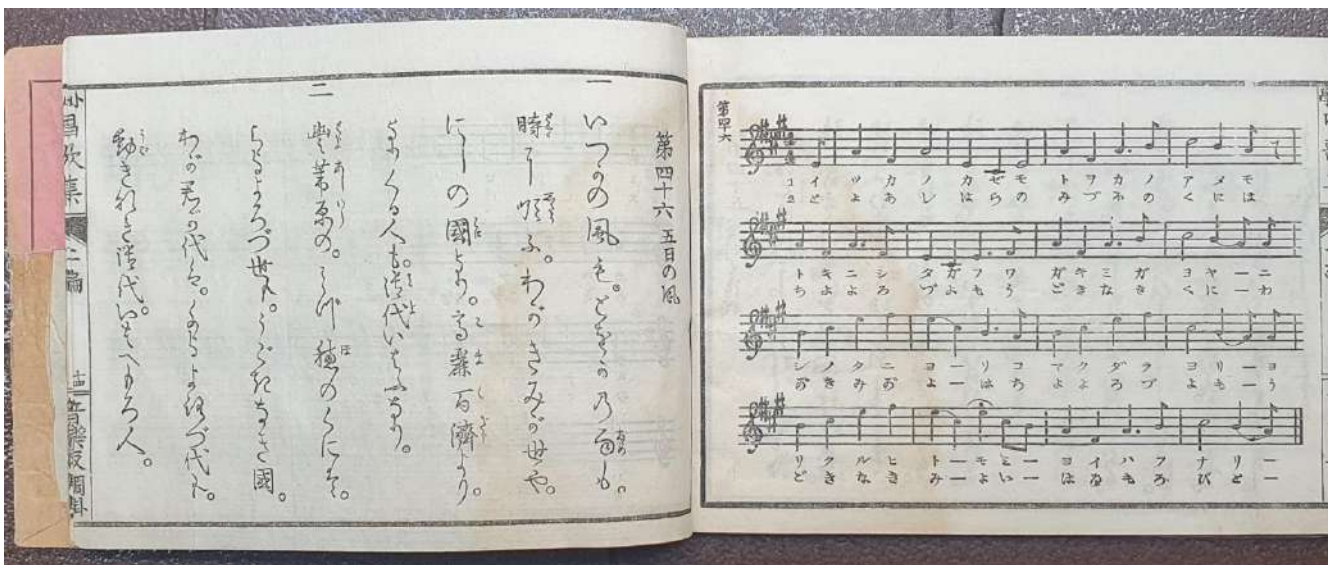 第四十六
一イツカノ カゼモ トヲカノ アメモ
二とよあ しはらの みづほの くには
トキニシ タガフワ ガキミガ ヨヤーニ
ちよよろ づよもう ごきなき くにーわ
シノクニ ヨーリコ マクダラ ヨリーヨ
がきみが よーはち よよろづ よもーう
リクルヒ トーモミー ヨイハフ ナリー
ごきなき みーよいー はへもろ びとー
第四十六 五日の風
一
いつかの風も。とをかの乃雨も。
時に順ふ。わがきみが世や。
にしの國より。高麗百濟より。
よりくる人も。御代いはふなり。
二
豐葦原の。みづ穗のくには。
ちよよろづ世も。うごきなき國。
わが君が代は。ちよよろづ代も。
動きなき御代。いはへもろ人。
唱歌集 二編 十四 音樂取調掛